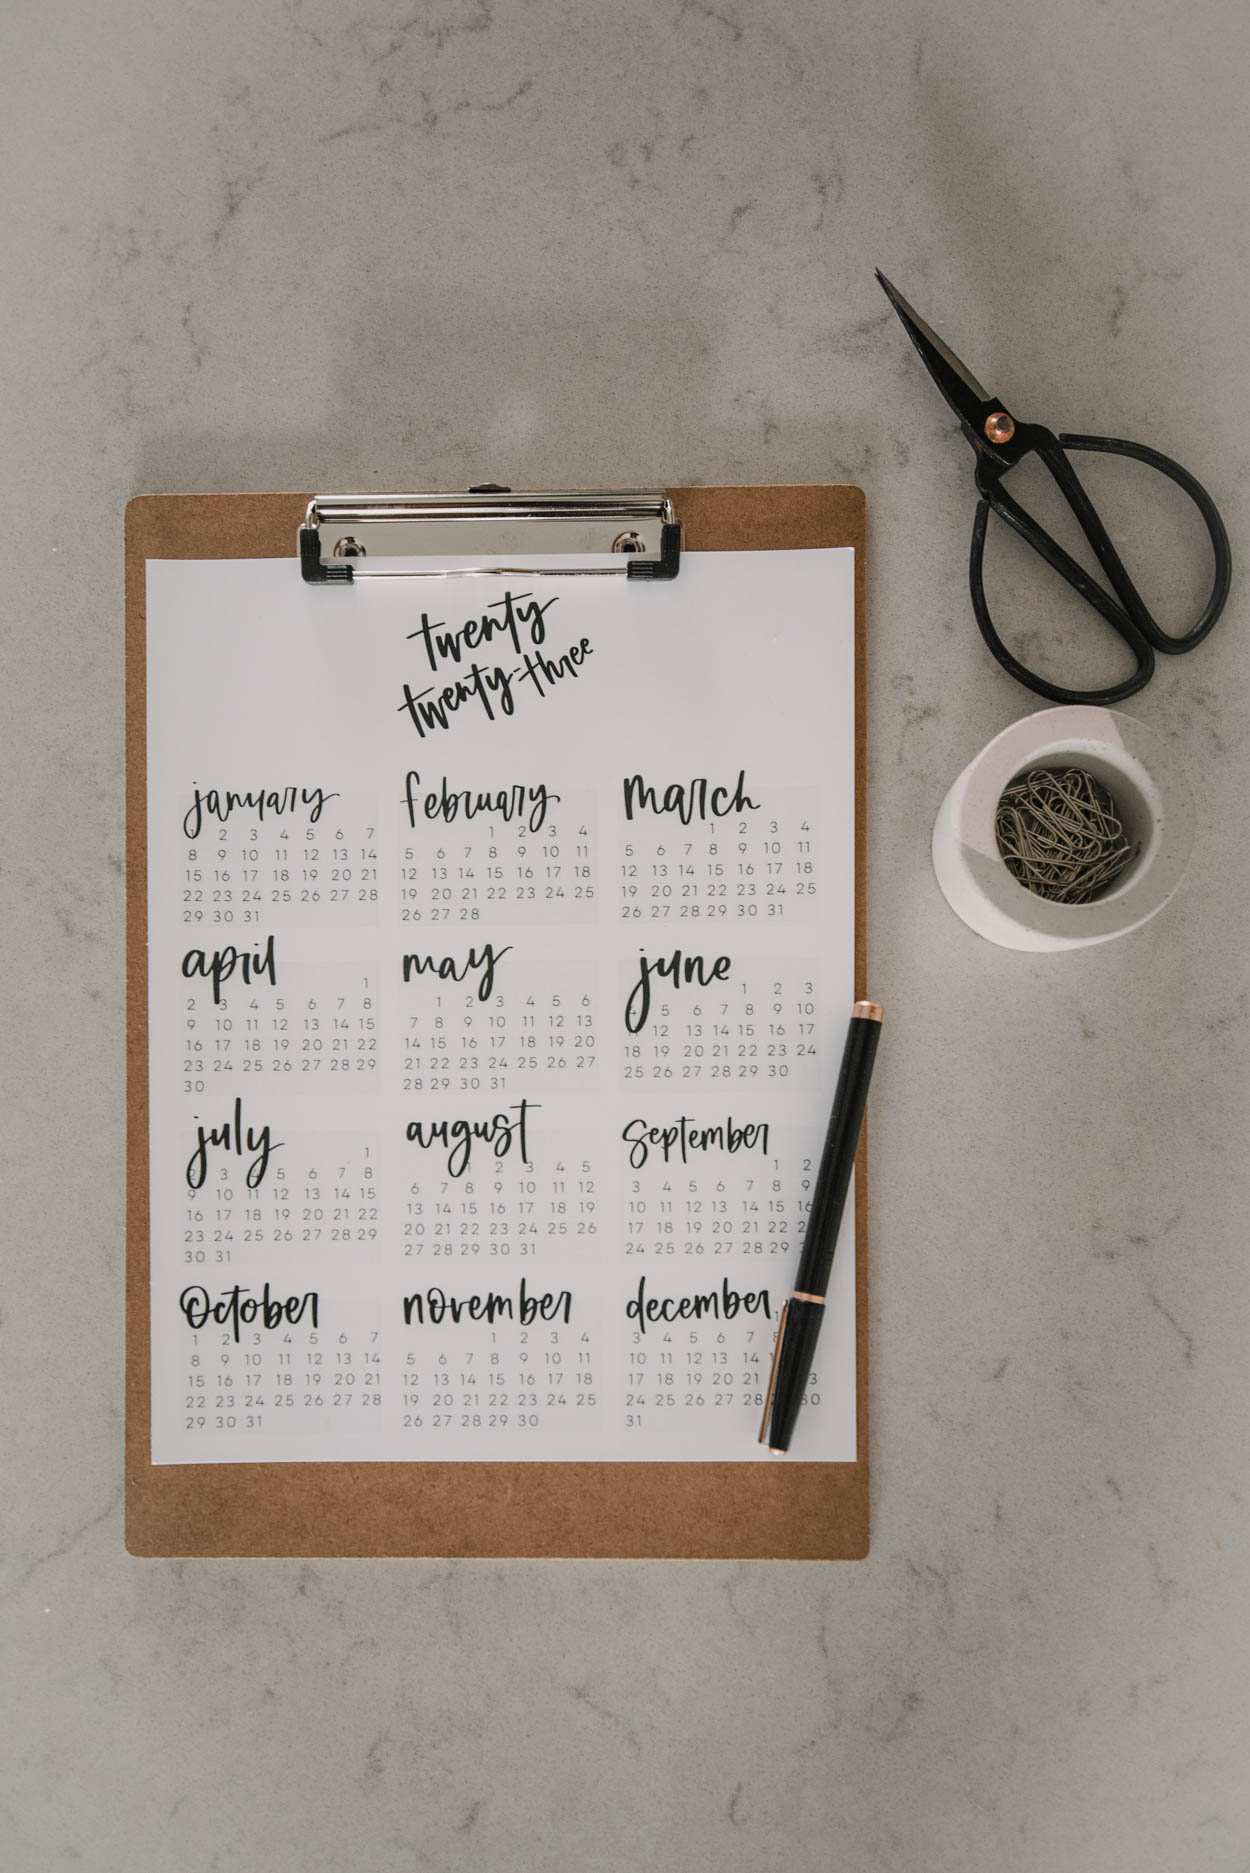 twenty
twenty-three
january
2 3 4 5 6 7
8 9 10 11 12 13 14
15 16 17 18 19 20 21
22 23 24 25 26 27 28
29 30 31
february
1 2 3 4
5 6 7 8 9 10 11
12 13 14 15 16 17 18
19 20 21 22 23 24 25
26 27 28
march
1 2 3 4
5 6 7 8 9 10 11
12 13 14 15 16 17 18
19 20 21 22 23 24 25
26 27 28 29 30 31
april
1
2 3 4 5 6 7 8
9 10 11 12 13 14 15
16 17 18 19 20 21 22
23 24 25 26 27 28 29
30
may
1 2 3 4 5 6
7 8 9 10 11 12 13
14 15 16 17 18 19 20
21 22 23 24 25 26 27
28 29 30 31
june
1 2 3
4 5 6 7 8 9 10
12 13 14 15 16 17
18 19 20 21 22 23 24
25 26 27 28 29 30
july
1
2 3 4 5 6 7 8
9 10 11 12 13 14 15
16 17 18 19 20 21 22
23 24 25 26 27 28 29
30 31
august
1 2 3 4 5
6 7 8 9 10 11 12
13 14 15 16 17 18 19
20 21 22 23 24 25 26
27 28 29 30 31
september
1 2
3 4 5 6 7 8 9
10 11 12 13 14 15 16
17 18 19 20 21 22
24 25 26 27 28 29
october
1 2 3 4 5 6 7
8 9 10 11 12 13 14
15 16 17 18 19 20 21
22 23 24 25 26 27 28
29 30 31
november
1 2 3 4
5 6 7 8 9 10 11
12 13 14 15 16 17 18
19 20 21 22 23 24 25
26 27 28 29 30
december
3 4 5 6 7
10 11 12 13 14
17 18 19 20 21
24 25 26 27 28 30
31